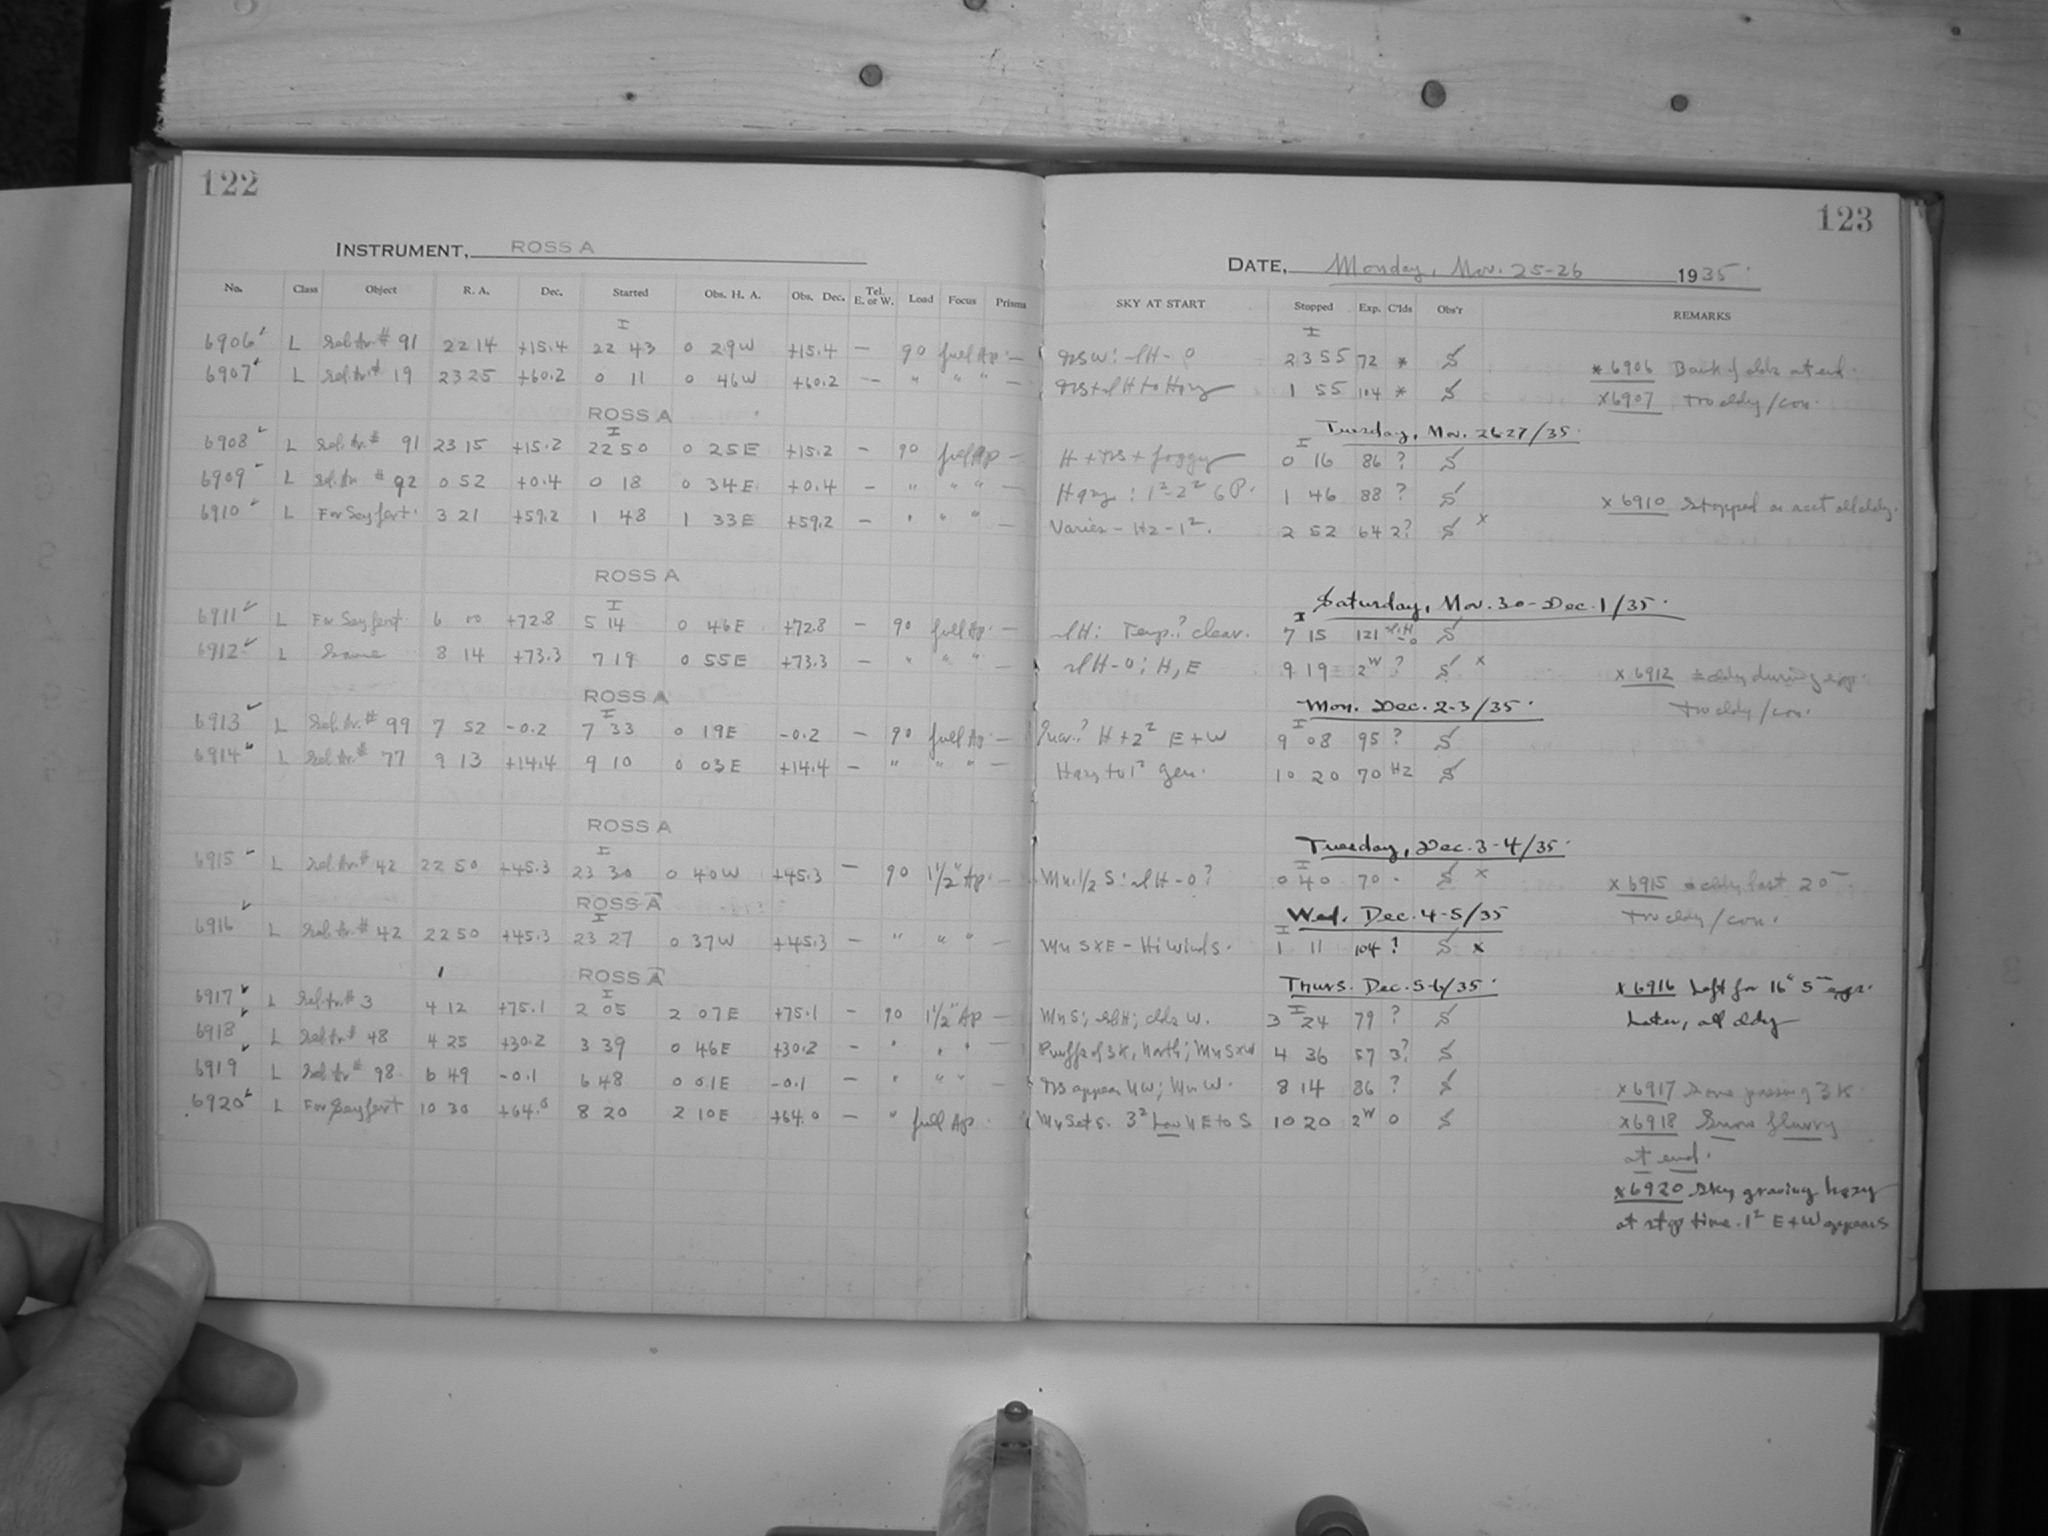 122
INSTRUMENT, ROSS A
No. Class Object R. A. Dec. Started Obs. H. A. Obs. Dec. Tel. E. or W. Load Focus Prisms
I
6906 L Sel. Ar. # 91 22 14 +15.4 22 43 0 29W +15.4 — 90 full Ap. —
6907 L Sel. Ar. # 19 23 25 +60.2 0 11 0 46W +60.2 — " " " —
ROSS A
I
6908 L Sel. Ar. # 91 23 15 +15.2 22 50 0 25E +15.2 — 90 full Ap —
6909 L Sel. Ar # 92 0 52 +0.4 0 18 0 34E +0.4 — " " " —
6910 L For Seyfert. 3 21 +59.2 1 48 1 33E +59.2 — " " " —
ROSS A
I
6911 L For Seyfert 6 00 +72.8 5 14 0 46E +72.8 — 90 full Ap. —
6912 L Same 8 14 +73.3 7 19 0 55E +73.3 — " " " —
ROSS A
I
6913 L Sel. Ar. # 99 7 52 -0.2 7 33 0 19E -0.2 — 90 full Ap —
6914 L Sel. Ar. # 77 9 13 +14.4 9 10 0 03E +14.4 — " " " —
ROSS A
I
6915 L Sel. Ar. # 42 22 50 +45.3 23 30 0 40W +45.3 — 90 1 1/2" Ap. —
ROSS A
I
6916 L Sel. Ar. # 42 22 50 +45.3 23 27 0 37W +45.3 — " " " —
ROSS A
I
6917 L Sel. Ar. # 3 4 12 +75.1 2 05 2 07E +75.1 — 90 1 1/2" Ap —
6918 L Sel. Ar. # 48 4 25 +30.2 3 39 0 46E +30.2 — " " " —
6919 L Sel. Ar. # 98 6 49 -0.1 6 48 0 01E -0.1 — " " " —
6920 L For Seyfert 10 30 +64.0 8 20 2 10E +64.0 — " full Ap
123
DATE, Monday, Nov. 25-26 1935.
SKY AT START Stopped Exp. C'lds Obs'r REMARKS
I
sl H - 0 23 55 72 * S * 6906 Bank of clds at end.
sl H to Hazy 1 55 104 * S x6907 Too cldy/con.
Tuesday, Nov. 26-27/35.
I
H + + foggy 0 16 86 ? S
Hazy: 1²-2² 1 46 88 ? S
Varies - Hz - 1². 2 52 64 2? S x x 6910 Stopped as acct all cldy.
Saturday, Nov. 30 - Dec. 1/35.
I
sl H: Temp.? clear. 7 15 121 sl H-0 S
sl H-0; H, E 9 19 2W ? S x x 6912 cldy during exp.
Too cldy/con.
Mon. Dec. 2-3/35.
I
H + 2² E+W 9 08 95 ? S
Hazy to 1² gen. 10 20 70 HZ S
Tuesday, Dec. 3-4/35.
I
Mn. 1/2 S: sl H-0? 0 40 70 - S x x 6915 cldy last 20
Too cldy/con.
Wed. Dec. 4-5/35
I
Mn SxE - Hi Winds. 1 11 104 ? S x
Thurs. Dec. 5-6/35. x 6916 Left for 16"
I
Mn S; sl H; clds W. 3 24 79 ? S Later, all cldy
Puffs of 3K, North; Mn SxW 4 36 57 3? S
appear NW; Mn W. 8 14 86 ? S x6917 Some passing 3K
Mn Sets. 3² Low NE to S 10 20 2W 0 S x6918 Snow flurry
at end.
x6920 Sky growing hazy
at stop time. 1² E+W appears